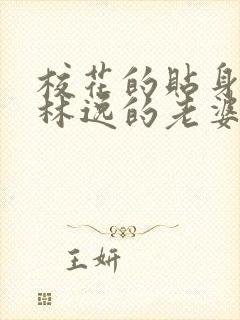 校花的贴身
林逸的老婆
王妍